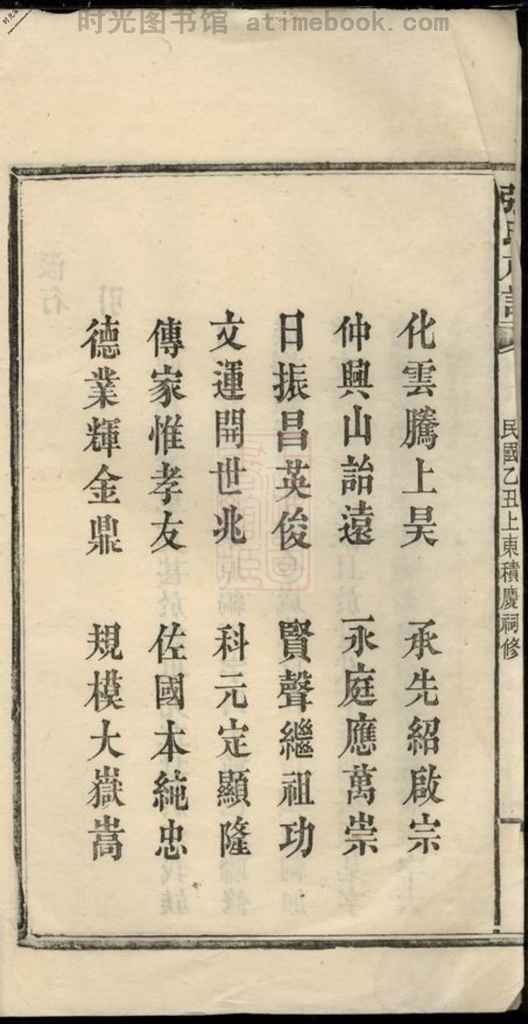 时光图书馆 - atimebook.com
民國乙丑上東積慶祠修
化雲騰上昊 承先紹啟宗
仲興山詒遠 永庭應萬崇
日振昌英俊 賢聲繼祖功
文運開世兆 科元定顯隆
傳家惟孝友 佐國本純忠
德業輝金鼎 規模大嶽嵩